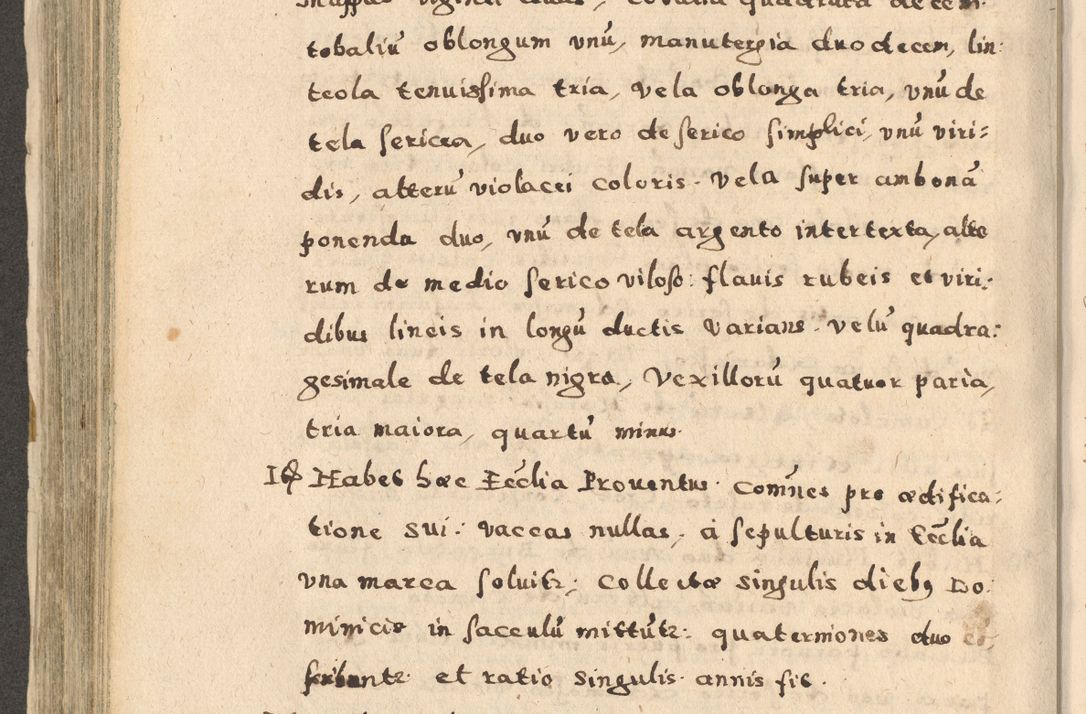 tobaliũ oblongum vnũ, manutergia duodecem, lin:
teola tenuissima tria, vela oblonga tria, vnũ de
tela sericea, duo vero de serico simplici, vnũ viri=
dis, alterũ violacei coloris. Vela super ambonã
ponenda duo, vnũ de tela argento intertexta, alte
rum de medio serico viloso: flauis rubeis et viri:
dibus lineis in longũ ductis varians. velũ quadra:
gesimale de tela nigra, Vexillorũ quatuor paria,
tria maiora, quartũ minus.
Itẽ Habet hæc Ecc̃lia Prouentus. Com̃nes pro ædifica:
tione sui: vaccas nullas, à sepulturis in Ecc̃lia
vna marca soluitr; Collectæ singulis dieb9 Do:
minicis in sacculũ mittũtr: quaterniones duo
et ratio singulis annis fit.